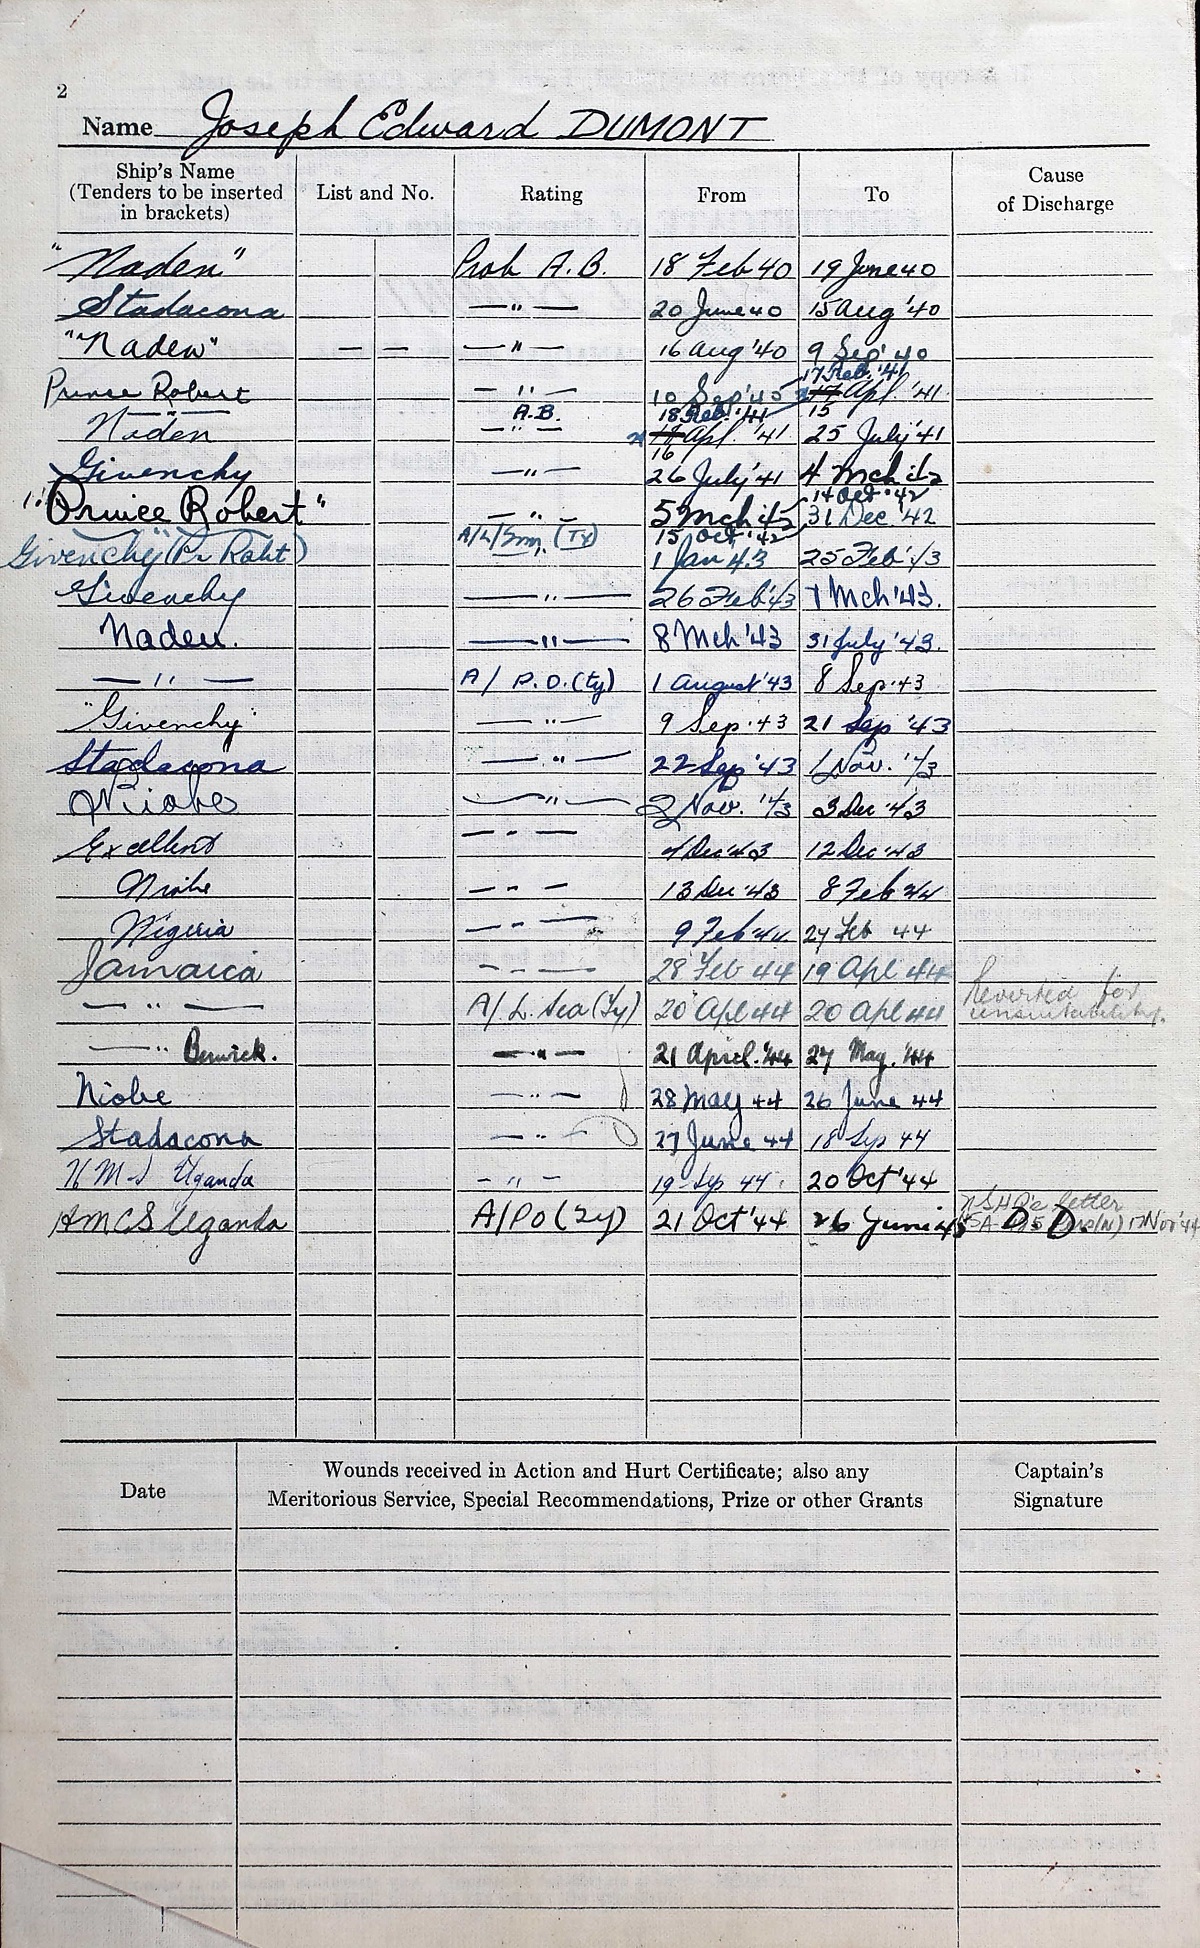 2
Name Joseph Edward DUMONT
Ship's Name (Tenders to be inserted in brackets) List and No. Rating From To Cause of Discharge
"Naden" Prob A.B. 18 Feb 40 19 June 40
Stadacona — " — 20 June 40 15 Aug '40
"Naden" — — — " — 16 Aug '40 9 Sep '40
17 Feb. '41
Prince Robert — " — 10 Sep '40 17 Apl. '41
— " — A.B. 18 Feb. '41 15
Naden — " — 18 Apl. '41 25 July '41
16
Givenchy — " — 26 July '41 4 Mch 42
14 Oct. 42
"Prince Robert" — " — 5 Mch 42 31 Dec '42
15 Oct '42
Givenchy (Pr Robt) A/L/Smn (Ty) 1 Jan 43 25 Feb '43
Givenchy — " — 26 Feb '43 7 Mch '43.
Naden. — " — 8 Mch '43 31 July '43.
— " — A/ P.O. (ty) 1 August '43 8 Sep '43
"Givenchy" — " — 9 Sep '43 21 Sep '43
Stadacona — " — 22 Sep '43 1 Nov. '43
Niobe — " — 2 Nov. '43 3 Dec '43
Excellent — " — 4 Dec '43 12 Dec '43
Niobe — " — 13 Dec '43 8 Feb 44
Nigeria — " — 9 Feb 44 27 Feb 44
Jamaica — " — 28 Feb 44 19 Apl 44
— " — A/ L. Sea (Ty) 20 Apl 44 20 Apl 44 Reverted for unsuitability.
— " Berwick. — " — 21 April. '44 27 May. '44
Niobe — " — 28 May 44 26 June 44
Stadacona — " — 27 June 44 18 Sep 44
HMS Uganda — " — 19 Sep 44. 20 Oct '44
HMCS Uganda A/PO (Ty) 21 Oct '44 26 June 45 D. D.
NSHQ's letter
17 Nov '44
Date Wounds received in Action and Hurt Certificate; also any Meritorious Service, Special Recommendations, Prize or other Grants Captain's Signature